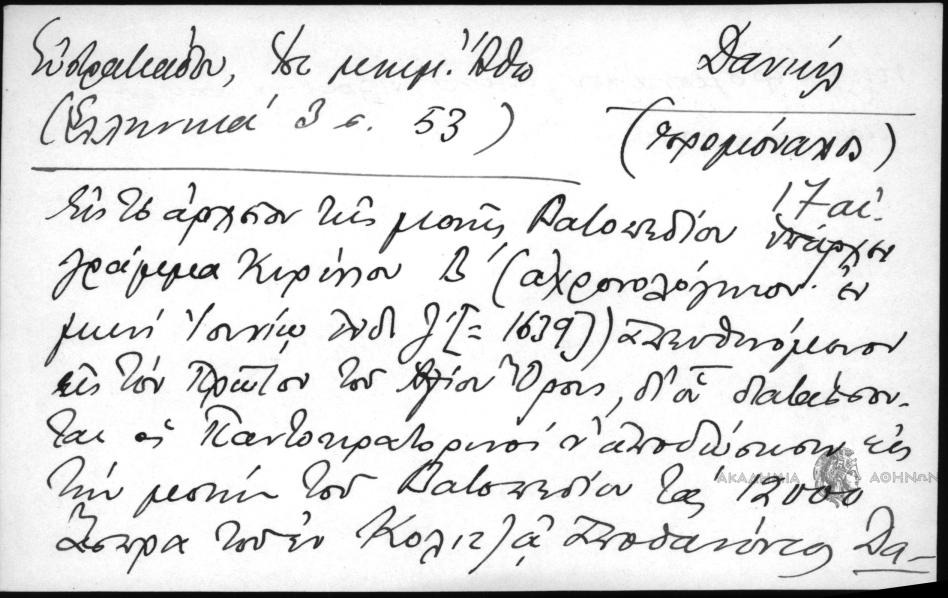 Εὐστρατιάδου, Ἱστ. μνημ. Ἄθω
(Ἑλληνικά 3 σ. 53)
Δανιήλ
(ἱερομόναχος)
17 αἰ.
Εἰς τὸ ἀρχεῖον τῆς μονῆς Βατοπεδίου ὑπάρχει
γράμμα Κυρίλλου Β΄ (ἀχρονολόγητον· ἐν
μηνὶ Ἰουνίῳ ἰνδ. ζ΄ [= 1639]) ἀπευθυνόμενον
εἰς τὸν Πρῶτον τοῦ Ἁγίου Ὄρους, δι' οὗ διατάσσον-
ται οἱ Παντοκρατορινοί ν' ἀποδώσωσιν εἰς
τὴν μονὴν τοῦ Βατοπεδίου τὰς 12000
ἄσπρα τοῦ ἐν Κολιτζᾷ ἀποθανόντος Δα-
ΑΚΑΔΗΜΙΑ ΑΘΗΝΩΝ